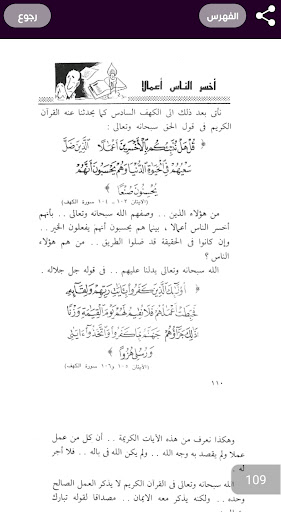 رجوع
الفهرس
أخسر الناس أعمالا
نأتى بعد ذلك الى الكهف السادس كما يحدثنا عنه القرآن
الكريم فى قول الحق سبحانه وتعالى :
﴿ قُلْ هَلْ نُنَبِّئُكُم بِالْأَخْسَرِينَ أَعْمَالًا الَّذِينَ ضَلَّ
سَعْيُهُمْ فِي الْحَيَوٰةِ الدُّنْيَا وَهُمْ يَحْسَبُونَ أَنَّهُمْ
يُحْسِنُونَ صُنْعًا ﴾
( الآيتان ١٠٣ ، ١٠٤ سورة الكهف )
من هؤلاء الذين .. وصفهم الله سبحانه وتعالى .. بأنهم
أخسر الناس أعمالا ، بينما هم يحسبون أنهم يفعلون الخير ..
وإن كانوا فى الحقيقة قد ضلوا الطريق .. من هم هؤلاء
الناس ؟
الله سبحانه وتعالى يدلنا عليهم .. فى قوله جل جلاله .
﴿ أُولَٰئِكَ الَّذِينَ كَفَرُوا بِآيَاتِ رَبِّهِمْ وَلِقَائِهِ
فَحَبِطَتْ أَعْمَالُهُمْ فَلَا نُقِيمُ لَهُمْ يَوْمَ الْقِيَٰمَةِ وَزْنًا
ذَٰلِكَ جَزَاؤُهُمْ جَهَنَّمُ بِمَا كَفَرُوا وَاتَّخَذُوا ءَايَٰتِي
وَرُسُلِي هُزُوًا ﴾
( الآيتان ١٠٥ و ١٠٦ سورة الكهف )
١١٠
وهكذا نعرف من هذه الآيات الكريمة .. أن كل من عمل
عملا ولم يقصد به وجه الله .. ولم يكن الله فى باله .. فلا أجر
له .
الله سبحانه وتعالى فى القرآن الكريم لا يذكر العمل الصالح
وحده .. ولكنه يذكر معه الايمان .. مصداقا لقوله تبارك
109